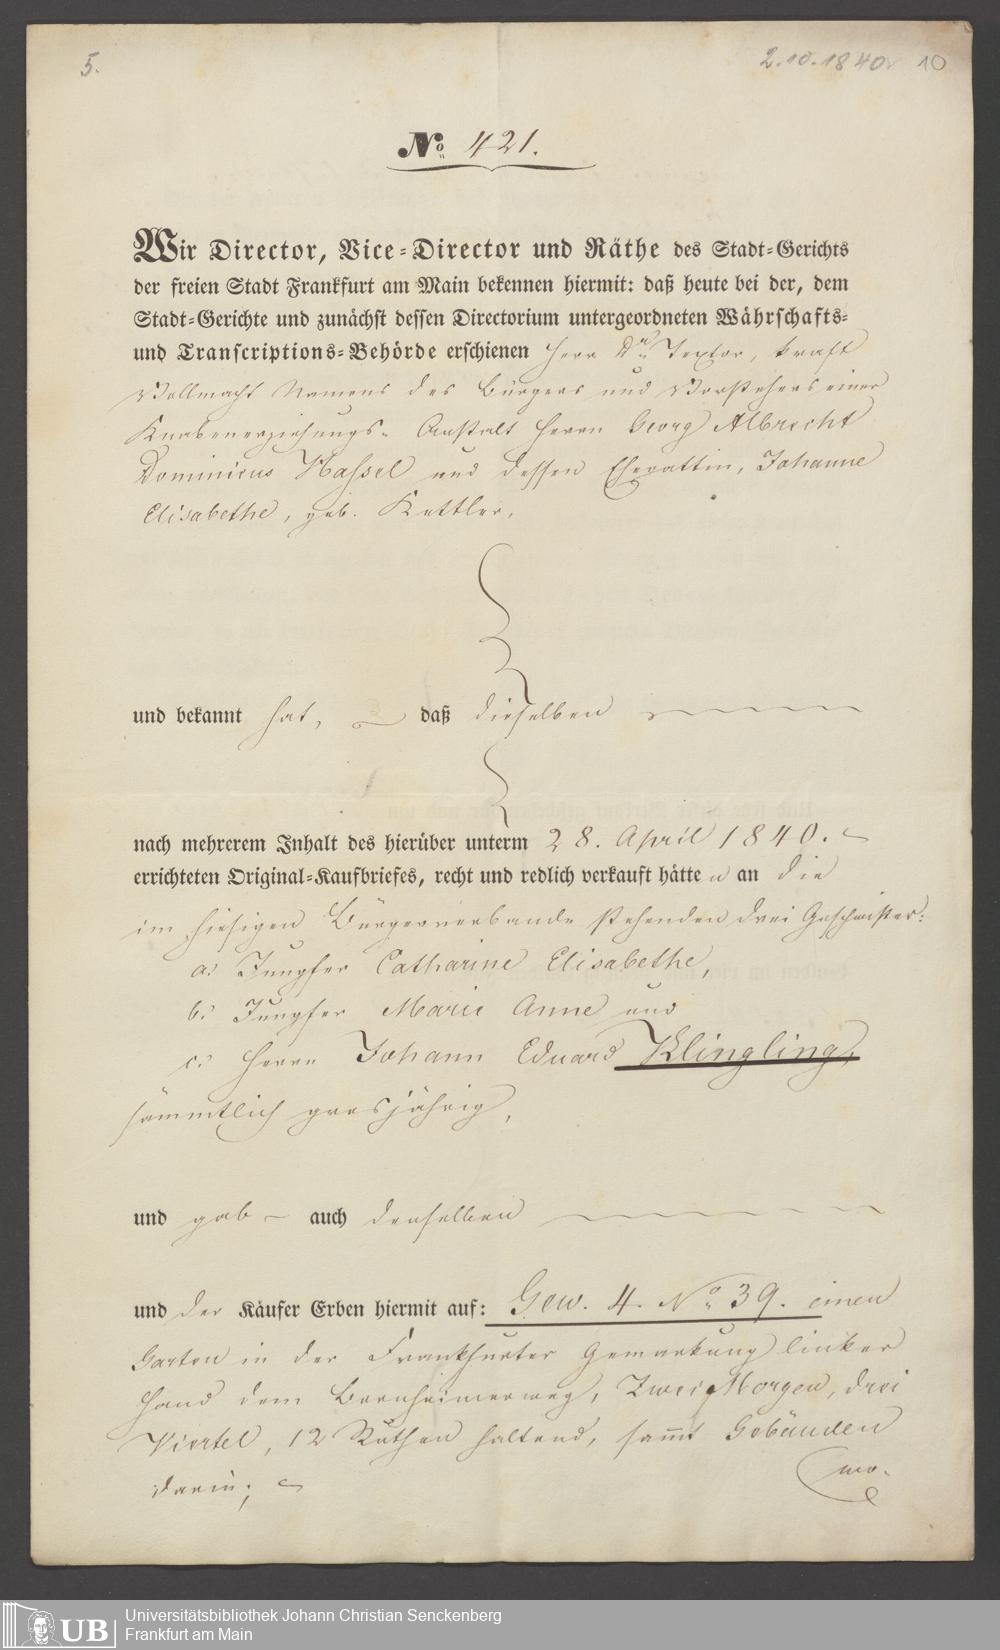 5.
2.10.1840 10
No 421.
Wir Director, Vice-Director und Räthe des Stadt-Gerichts
der freien Stadt Frankfurt am Main bekennen hiermit: daß heute bei der, dem
Stadt-Gerichte und zunächst dessen Directorium untergeordneten Währschafts-
und Transcriptions-Behörde erschienen Herr Dr. Textor, kraft
Vollmacht Namens des Bürgers und Vorstehers einer
Knabenerziehungs-Anstalt Herrn Georg Albrecht
Dominicus Hassel und dessen Ehegattin, Johanne
Elisabethe, geb. Kettler,
und bekannt hat, daß dieselben
nach mehrerem Inhalt des hierüber unterm 28. April 1840.
errichteten Original-Kaufbriefes, recht und redlich verkauft hätten an die
im hiesigen Bürgerverbande stehenden drei Geschwister:
a. Jungfer Catharine Elisabethe,
b. Jungfer Marie Anne und
c. Herrn Johann Eduard Klingling,
sämmtlich grosjährig,
und gab auch denselben
und der Käufer Erben hiermit auf: Gew. 4. No 39. einen
Garten in der Frankfurter Gemarkung linker
Hand dem Bornheimerweg, Zwei Morgen, drei
Viertel, 12 Ruthen haltend, sam̅t Gebäuden
darin;
wo-
UB Universitätsbibliothek Johann Christian Senckenberg
Frankfurt am Main